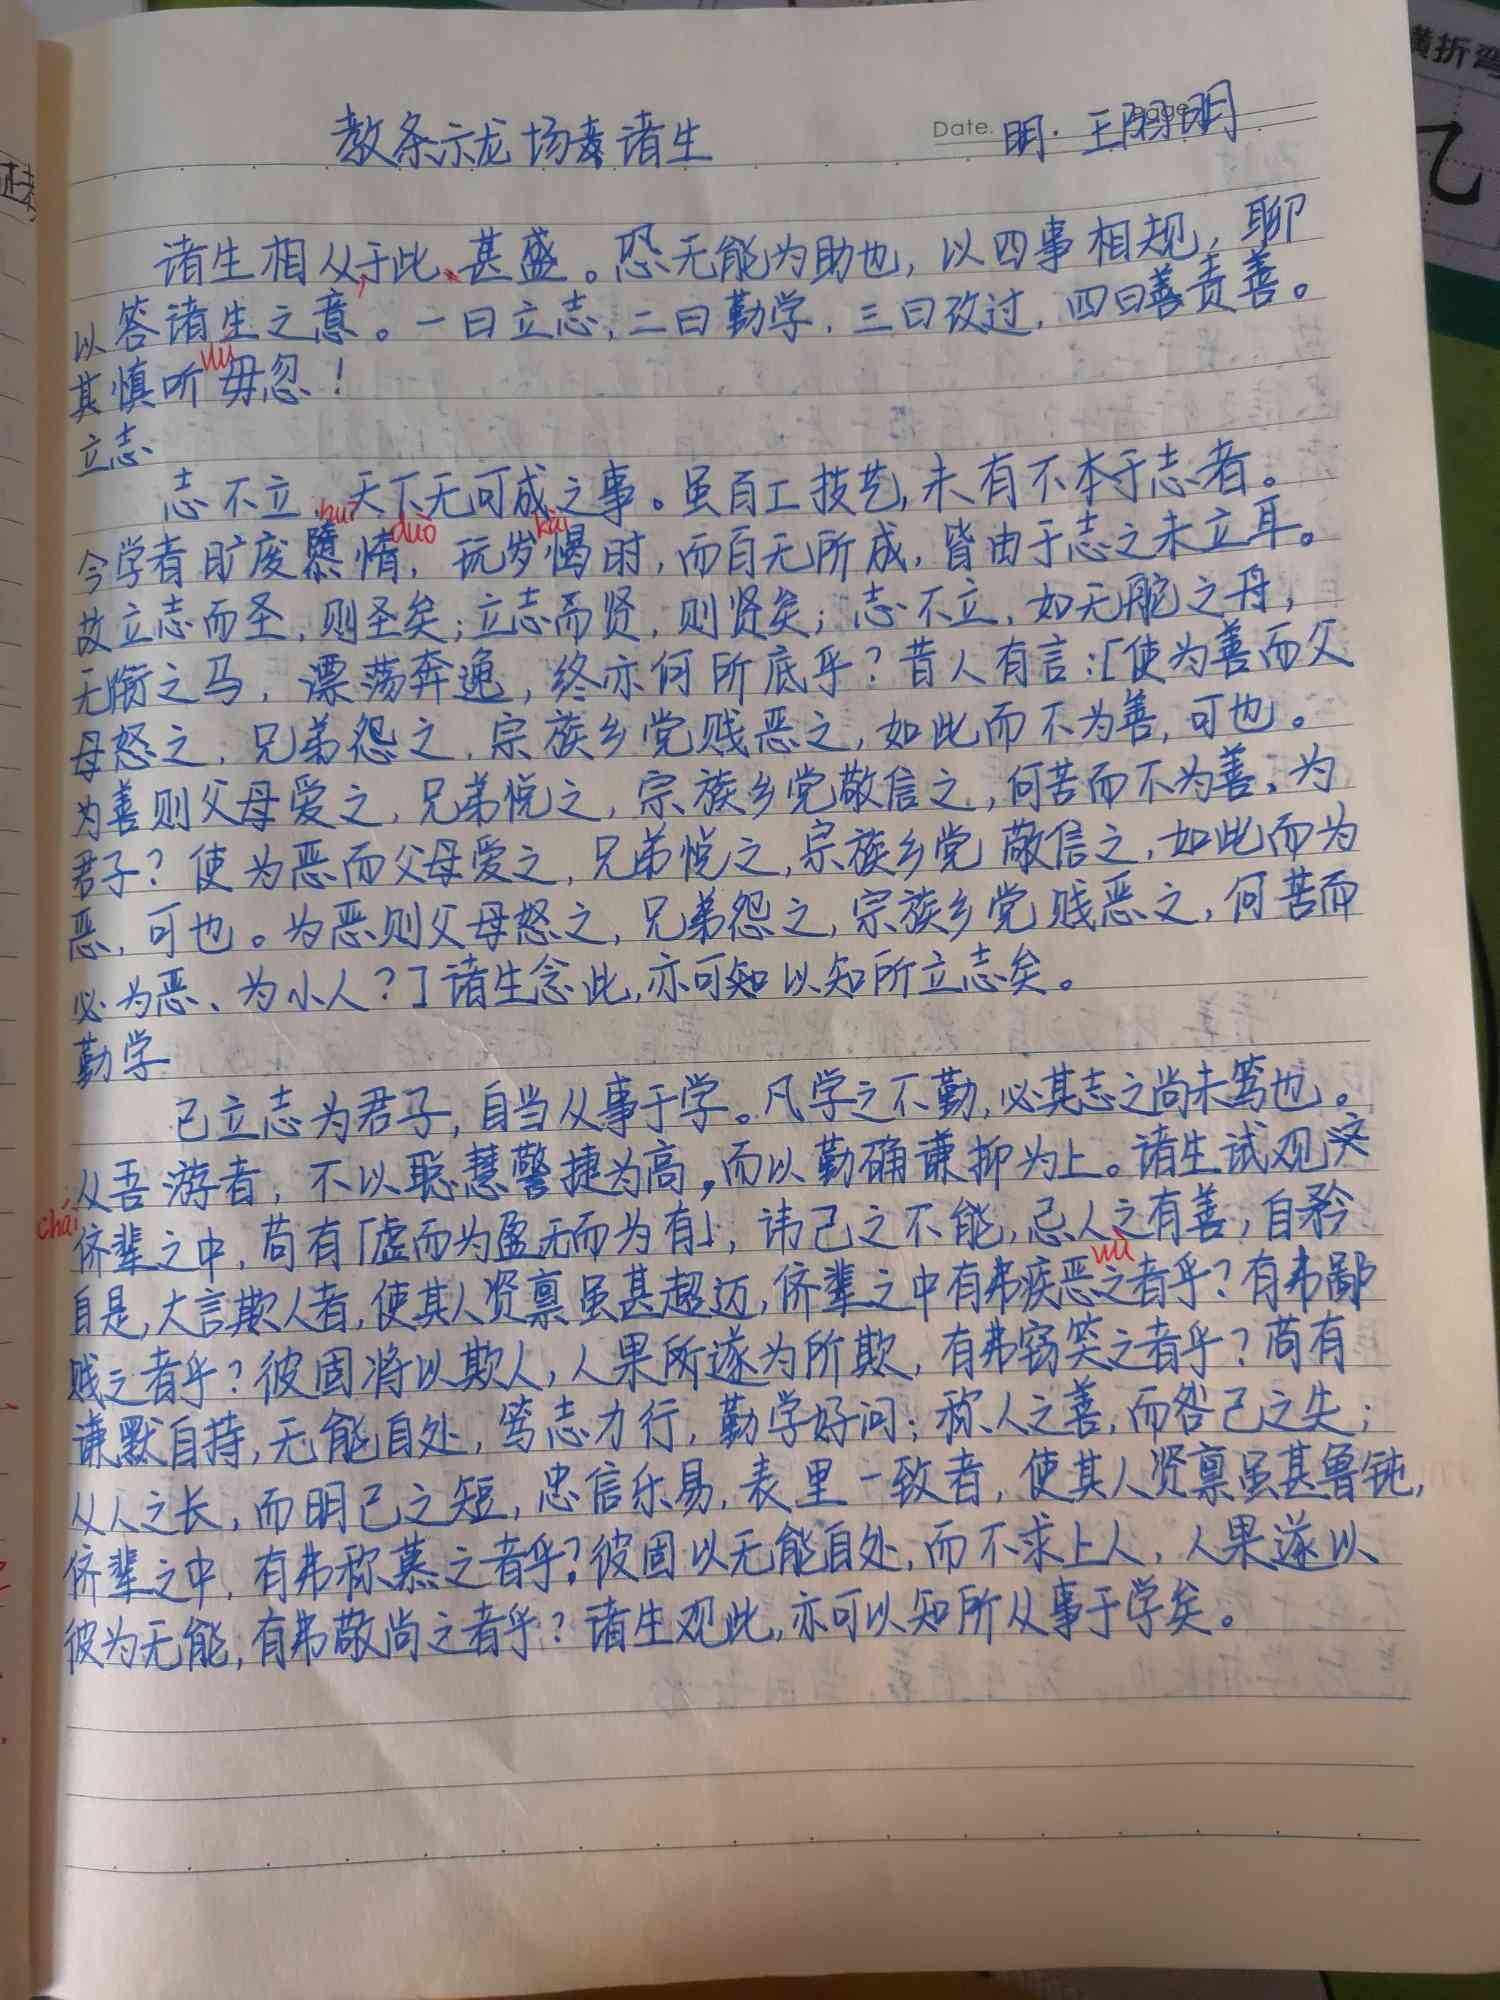 教条示龙场诸生
Date.
page
明·王阳明
诸生相从于此,甚盛。恐无能为助也,以四事相规,聊
以答诸生之意。一曰立志,二曰勤学,三曰改过,四曰责善。
wu
其慎听毋忽!
立志
志不立,天下无可成之事。虽百工技艺,未有不本于志者。
duò
kài
今学者旷废隳惰,玩岁愒时,而百无所成,皆由于志之未立耳。
故立志而圣,则圣矣;立志而贤,则贤矣;志不立,如无舵之舟,
无衔之马,漂荡奔逸,终亦何所底乎?昔人有言:「使为善而父
母怒之,兄弟怨之,宗族乡党贱恶之,如此而不为善,可也。
为善则父母爱之,兄弟悦之,宗族乡党敬信之,何苦而不为善、为
君子?使为恶而父母爱之,兄弟悦之,宗族乡党敬信之,如此而为
恶,可也。为恶则父母怒之,兄弟怨之,宗族乡党贱恶之,何苦而
必为恶、为小人?」诸生念此,亦可知以知所立志矣。
勤学
已立志为君子,自当从事于学。凡学之不勤,必其志之尚未笃也。
从吾游者,不以聪慧警捷为高,而以勤确谦抑为上。诸生试观
chái
侪辈之中,苟有「虚而为盈,无而为有」,讳己之不能,忌人之有善,自矜
wù
自是,大言欺人者,使其人资禀虽甚超迈,侪辈之中有弗疾恶之者乎?有弗鄙
贱之者乎?彼固将以欺人,人果所遂为所欺,有弗窃笑之者乎?苟有
谦默自持,无能自处,笃志力行,勤学好问;称人之善,而咎己之失;
从人之长,而明己之短,忠信乐易,表里一致者,使其人资禀虽甚鲁钝,
侪辈之中,有弗称慕之者乎?彼固以无能自处,而不求上人,人果遂以
彼为无能,有弗敬尚之者乎?诸生观此,亦可以知所从事于学矣。
横折弯